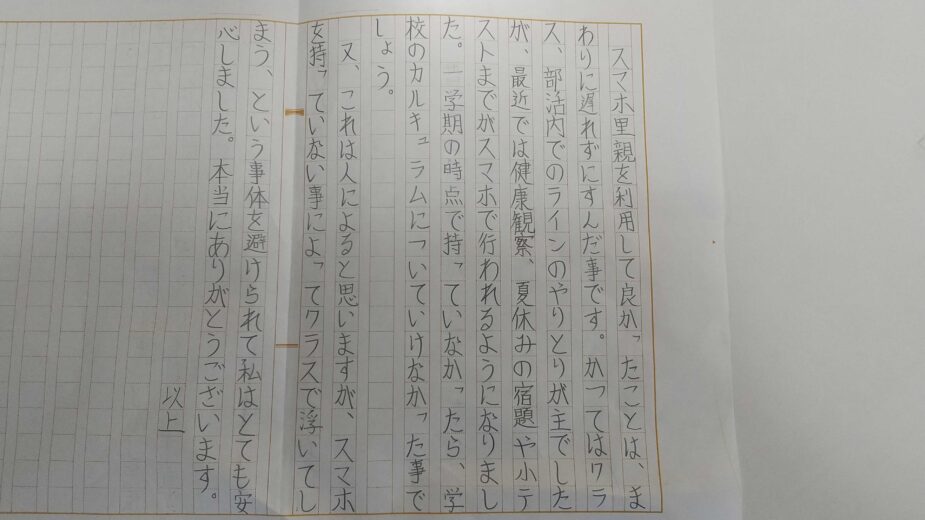 スマホ里親を利用して良かったことは、ま
わりに遅れずにすんだ事です。かつてはクラ
ス、部活内でのラインのやりとりが主でした
が、最近では健康観察、夏休みの宿題や小テ
ストまでがスマホで行われるようになりまし
た。一学期の時点で持っていなかったら、学
校のカルキュラムについていけなかった事で
しょう。
又、これは人によると思いますが、スマホ
を持っていない事によってクラスで浮いてし
まう、という事体を避けられて私はとても安
心しました。本当にありがとうございます。
以上